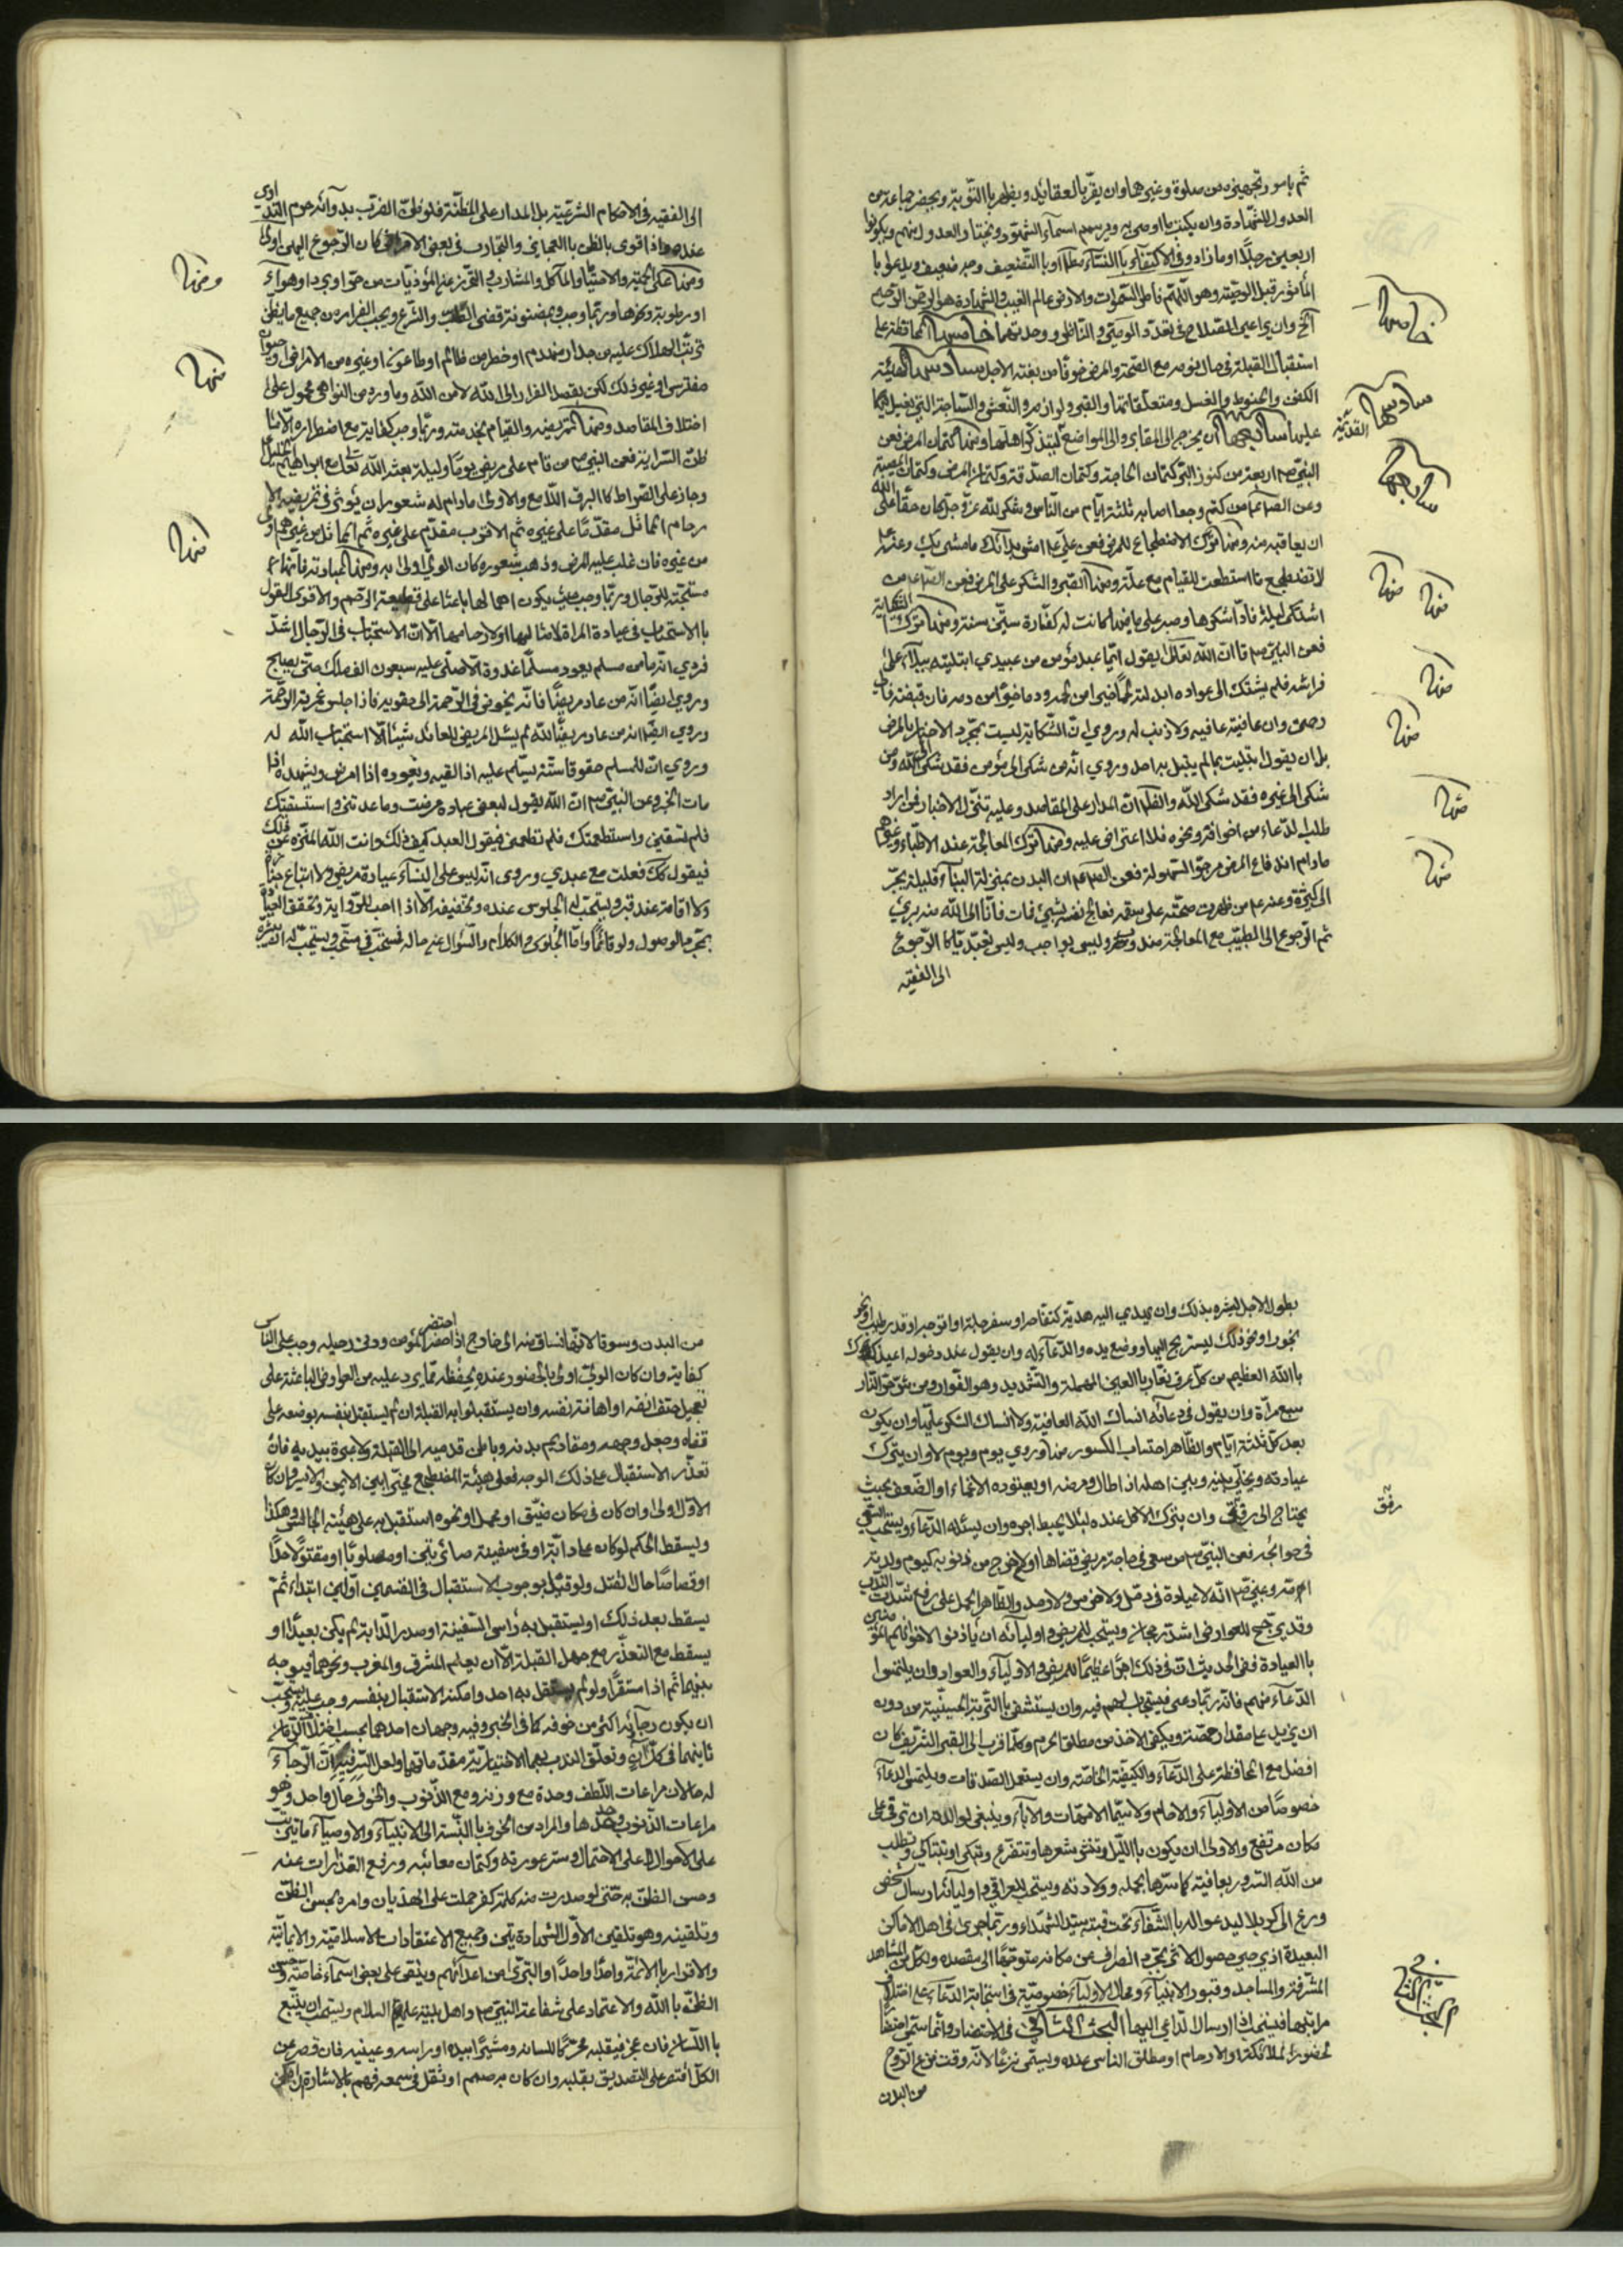 ثم بامور تجهيزه من صلوة وغيرها وان يقرّ بالعقايد ويظهر با التّوبة ويحضر جماعة من
العدول للشّهادة وان يكتب ما اوصى به ويرسم اسمآء الشّهود ويختار العدول منهم ويكونوا
اربعين رجلاً او ما زاد وفى الاكتفآء با النّسآء مطلقا او با التّضعيف وجه ضعيف ويدعو با
المأثور قبل الوصيّة وهو اللّهمّ فاطر السّموات والارض عالم الغيب والشهادة هو الرحمن الرّحيم
الخ وان يراعي الصّلاح فى تعدّد الوصيّ والنّاظر ووحدتهما خامسها المحافظة على
استقبال القبلة فى حال نومه مع الصّحة والمرض خوفًا من بغتة الاجل سادسها تهيئة
الكفن والحنوط والغسل ومتعلّقاتها والقبر ولوازمه والنّعش والسّاجة التي يغسل
عليها سابعها ان يخرج الى المقابر والى المواضع ليتذكّر اهلها ومنها كتمان المرض فعن
النبيّ ص اربعة من كنوز البرّ كتمان الحاجة وكتمان الصّدقة وكتمان المرض وكتمان المصيبة
وعن الصّادق من كتم وجعا اصابه ثلثة ايّام من النّاس وشكى لله عزّ وجلّ كان حقّا على الله
ان يعافيه منه ومنها ترك الاضطجاع للمرض فعن عليّ ع امش بدآئك ما مشى بك وعنه ع
لا تضطجع ما استطعت القيام مع علّة ومنها الصّبر والشكر على المرض فعن الصّادق ع من
اشتكى ليلة فادّا شكرها وصبر على ما فيها كانت له كفّارة ستّين سنة ومنها ترك الشّكاية
فعن النبيّ ص قال انّ الله تعالى يقول ايّما عبد مؤمن من عبيدي ابتليته ببلآء على
فراشه فلم يشتك الى عواده ابدلته لحمًا خيرا من لحمه ودما خيرًا من دمه فان قبضته فالى
رحمتى وان عافيته عافيته ولا ذنب له وروي انّ الشّكاية ليست بمجرّد الاخبار بالمرض
بل ان يقول ابتليت بما لم يبتل به احد وروي انّه من شكى الى مؤمن فقد شكى الى الله ومن
شكى الى غيره فقد شكى اللّه والظّاهر انّ المدار على المقاصد وعليه تنزّل الاخبار فمن اراد
طلب الدّعاء من اخوانه ونحوه فلا اعتراض عليه ومنها ترك المعالجة عند الاطبّاء وغيرهم
مادام اندفاع المرض مرجوّ السّهولة فعن الصّادق ع ان البدن بمنزلة البنآء قليله يجرّ
الى كثيره وعنه ع من ظهرت صحّته على سقمه فعالج نفسه بشيئ فمات فانا الى اللّه منه بريء
ثم الرّجوع الى الطّبيب مع المعالجة مندوب وليس بواجب وليس تعبّديّا كا الرّجوع
الى الفقيه
خامسها
سادسها
القدسيّة
سابعها
منها
منها
منها
منها
منها
منها
الى الفقيه فى الاحكام الشرعيّة بل المدار على المظنّة فلو ظنّ الضّرر بدوآئه حرم التداوى
عنده واذا قوى با الظنّ با العجائز والتجارب فى بعض الامراض كان الرّجوع اليهن اولى
ومنها الحمية والاحتياط والمآكل والمشارب والتحرّز عن المؤذيات من حرّ او برد او هوآء
او رطوبة ونحوها وربّما وجب وبمضمونه قضى الطبّ والشّرع ويجب الفرار من جميع ما يظنّ
ترتّب الهلاك عليه من جدار منهدم او خطر من ظالم او طاعون او غيره من الامراض او حيوان
مفترس او غير ذلك لكن بقصد الفرار الى الله لا من الله وما ورد من النّواهى محمول على
اختلاف المقاصد ومنها تمريضه والقيام بخدمته وربّما وجب كفاية مع اضطراره
فعن النبيّ ص من قام على مريض يومًا وليلة بعثه الله تعالى مع ابراهيم الخليل
وجاز على الصّراط كا البرق اللّامع والاولى ما دام له شعور ان يؤثر فى تمريضه الا
رحام المماثل مقدّمًا على غيره ثم الاقرب مقدّم على غيره ثم المماثل من غيرهما اولى
من غيره فان غلب عليه المرض وذهب شعوره كان الوليّ اولى به ومنها العيادة فانّها
مستحبّة للرّجال وربّما وجبت حيث يكون اهمالها باعثا على قطيعة الرّحم والاقوى القول
با الاستحباب فى عيادة المراة لامثالها اولارحامها الّا انّ الاستحباب فى الرّجال اشدّ
فروي انّه ما من مسلم يعود مسلمًا غدوة الّا صلّى عليه سبعون الف ملك حتى يصبح
وروي ايضًا انّه من عاد مريضًا فانّه يخوض فى الرّحمة الى حقويه فاذا جلس غمرته الرّحمة
وروي ايضًا انّ من عاد مريضًا للّه لم يسئل المريض للعائد شيئا الّا استجاب اللّه له
وروي انّ للمسلم حقوقا ستّة يسلّم عليه اذا لقيه ويعوده اذا مرض ويشهده اذا
مات الخ وعن النبيّ ص انّ اللّه يقول لبعض عباده مرضت وما عدتني واستسقتك
فلم تسقني واستطعمتك فلم تطعمني فيقول العبد كيف ذلك وانت اللّه المنزّه عن ذلك
فيقول لو فعلت مع عبدي وروي انّه ليس على النسآء عيادة مريض ولا اتباع جنازة
ولا اقامة عند قبر ويستحبّ له الجلوس عنده وتخفيفه الّا اذا احبّ للرّواية وتحقق العيادة
بمجرّد الوصول ولو قائمًا وامّا الجلوس والكلام والسّؤال عن حاله فمستحبّ فى مستحبّ ويستحبّ له
ومنها
منها
منها
بطول الاجل ليسّره بذلك وان يهدي اليه هدية كتفّاحة او سفرجلة او اترجة او قدر طيب او نحو
بخور او نحو ذلك ليستريح اليها ووضع يده والدّعآء له وان يقول عند دخوله اعيذك
با اللّه العظيم من كلّ عرق نعّار با العين المهملة والتّشديد وهو الفوّار ومن شرّ حرّ النّار
سبع مرّاة وان يقول فى دعائه انسألك اللّه العافية ولا انسالك الشكر عليها وان يكون
بعد كلّ ثلثة ايّام والظّاهر احتساب الكسور منها وروي يوم ويوم لا وان يترك
عيادته ويخلّى بينه وبين اهله اذا طال مرضه او يعتوده الاغماء او الضّعف بحيث
يحتاج الى رفق وان يترك الاكل عنده لئلا يحبط اجره وان يسئله الدّعآء ويستحبّ السّعى
فى حوائجه فعن النبيّ ص من سعى فى حاجة مريض قضاها اولا خرج من ذنوبه كيوم ولدته
امّه وعنهم انّه لا عيادة فى دمّل ولا ضرس ولا رمد والظّاهر الحمل على رفع شدّت الندب
وقد يرجّح للعوارض اشدّ رجحان ويستحبّ للمريض واوليآئه ان ياذنوا لاخوانهم المؤمنين
با العيادة ففى الحديث انّ فى ذلك اجرًا عظيمًا للمريض والاوليآء والعواد وان يلتمسوا
الدّعآء منهم فانّه ربّما دعى فيستجاب لهم فيه وان يستشفى با التّربة الحسينيّة من دون
ان يزيد على مقدار حمّصة ويكفى الاخذ من مطلق الحرم وكلّما قرب الى القبر الشّريف كان
افضل مع المحافظة على الدّعآء والكيفيّة الخاصّة وان يستعمل الصّدقات ويلتمس الدعآء
خصوصًا من الاوليآء والارحام ولا سيّما الامّهات والابآء وينبغى لوالدته ان ترقى على
مكان مرتفع والاولى ان يكون با اللّيل وتنشر شعرها وتتضرّع وتبكى او تتباكى وتطلب
من اللّه السّرور بعافيته كما سرّها بحمله وولادته ويستحبّ للعراقي واوليآئه ارسال شخص
ورع الى كربلا ليدعو اله با الشّفآء تحت قبّة سيّد الشّهداء وربّما جرى فى اهل الاماكن
البعيدة اذ يرجى حصول الاثر بمجرّد انصرافه عن مكانه متوجّهًا الى مقصده ولكلّ من المشاهد
المشرّفة والمساجد وقبور الانبيآء ومحالّ الاوليآء خصوصيّة فى استجابة الدّعآء على اختلاف
مراتبها فيستحبّ اذا ارسال الدّاعي اليها البحث الثّانى فى الاحتضار وانّما سمّي احتضارًا
لحضور الملآئكة او الارحام او مطلق النّاس عنده ويسمّى نزعًا لانّه وقت نزع الرّوح
من البدن
رفق
البحث الثاني
من البدن وسوقا لانّها تساق منه الى خارج اذا احتضر المؤمن ودنى رحيله وجب على النّاس
كفاية وان كان الوليّ اولى با الحضور عنده بحفظه ممّا يرد عليه من العوارض الباعثة على
تعجيل حتف انفه او اهانة نفسه وان يستقبلوا به القبلة ان لم يستقبل بنفسه بوضعه على
قفاه وجعل وجهه ومقاديم بدنه وباطن قدميه الى القبلة ولا عبرة بيديه فان
تعذّر الاستقبال على ذلك الوجه فعلى هيئة المضطجع مخيّرا بين الايمن والايسر وان كان
الاوّل اولى وان كان فى مكان ضيّق او محمل او نحوه استقبل به على هيئة الجالس وهكذا
ويسقط الحكم لو كان على دابّة او فى سفينة سائرتين او مصلوبًا او مقتولًا حدًّا
او قصاصًا حال القتل ولو قيل بوجوب الاستقبال فى القسمين اوّلين ابتداء ثم
يسقط بعد ذلك او يستقبل به رأس السّفينة او صدر الدّابة لم يكن بعيدًا و
يسقط مع التعذّر مع جهل القبلة الّا ان يعلم المشرق والمغرب ونحوهما فيوجه
بينهما ثم اذا استقرّ ولو لم يستقبل به احد وامكنه الاستقبال بنفسه وجب عليه ويستحبّ
ان يكون رجآئه اكثر من خوفه كما فى الخبر وفيه وجهان احدهما
ثانيهما فى كلّ آن وتعلّق النّدب بهما الاختياريّة مقدّماتهما ولعل السّر فيه انّ الرّجآء
له حالان مراعات اللّطف وحدة مع وزنه ومع الذّنوب والخوف حال واحد وهو
مراعات الذّنوب وحدها والمراد من الخوف با النّسبة الى الانبيآء والاوصيآء ما يترتّب
على الاحوال لا على الاحتمال وستر عورته وكتمان معائبه ورفع القذارات عنه
وحسن الظنّ به حتّى لو صدرت منه كلمة كفر حملت على الهذيان وامره بحسن الظنّ
وتلقينه وهو تلقين الاوّل الشهادتين وجميع الاعتقادات الاسلاميّة والايمانيّة
والاقرار با الائمّة واحدًا واحدًا والتبرّى من اعدآئهم وينصّ على بعض اسمآء خاصّة وحسن
الظّنّ با اللّه والاعتماد على شفاعة النّبيّ ص واهل بيته عليهم السلام ويستحبّ ان يتبع
با اللّسان فان عجز فبقلبه محرّكًا للسانه ومشيرًا بيده او راسه وعينيه فان قصر عن
الكلّ اقتصر على التصديق بقلبه وان كان به صمم او ثقل فى سمعه فهم بالاشارة ان امكن